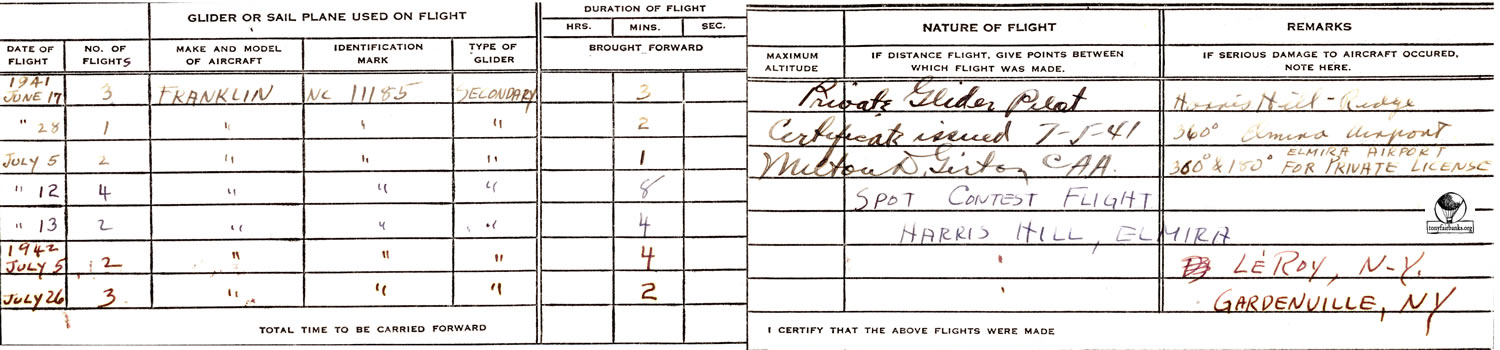 GLIDER OR SAIL PLANE USED ON FLIGHT
DURATION OF FLIGHT
HRS. MINS. SEC.
BROUGHT FORWARD
DATE OF FLIGHT
NO. OF FLIGHTS
MAKE AND MODEL OF AIRCRAFT
IDENTIFICATION MARK
TYPE OF GLIDER
NATURE OF FLIGHT
REMARKS
MAXIMUM ALTITUDE
IF DISTANCE FLIGHT, GIVE POINTS BETWEEN WHICH FLIGHT WAS MADE.
IF SERIOUS DAMAGE TO AIRCRAFT OCCURED, NOTE HERE.
1941
JUNE 17 3 FRANKLIN NC 11185 SECONDARY 3 Private Glider Pilot Harris Hill - Ridge
" 28 1 " " " 2 Certificate issued 7-5-41 360° Elmira Airport
JULY 5 2 " " " 1 Milton D. Girton CAA. 360° & 180° ELMIRA AIRPORT FOR PRIVATE LICENSE
" 12 4 " " " 8 SPOT CONTEST FLIGHT
" 13 2 " " " 4 HARRIS HILL, ELMIRA
tonyfairbanks.org
1942
JULY 5 2 " " " 4 " LEROY, N-Y.
JULY 26 3 " " " 2 " GARDENVILLE, NY
TOTAL TIME TO BE CARRIED FORWARD
I CERTIFY THAT THE ABOVE FLIGHTS WERE MADE